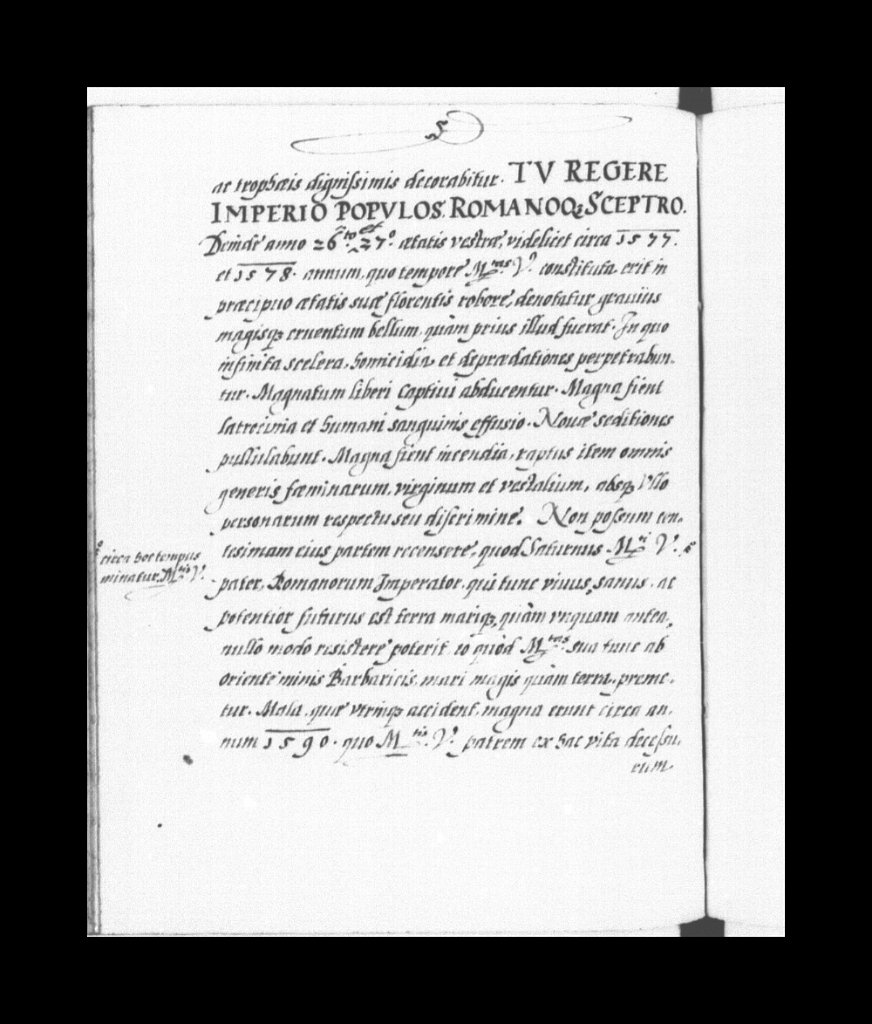 5
ac trophæis dignissimis decorabitur. TV REGERE
IMPERIO POPVLOS ROMANOQ; SCEPTRO.
Deinde anno 26.to et 27.o ætatis vestræ, videlicet circa 1577.
et 1578. annum, quo tempore M.tas V.a constituta erit in
præcipuo ætatis suæ florentis robore, denotatur grauius
magisq; cruentum bellum, quàm prius illud fuerat. In quo
infinita scelera, homicidia et deprædationes perpetrabun-
tur. Magnatum liberi captiui abducentur. Magna fient
latrocinia et humani sanguinis effusio. Nouæ seditiones
pullulabunt. Magna fient incendia, raptus item omnis
generis fœminarum, virginum et vestalium, absq; vllo
personarum respectu seu discrimine. Non possum ten-
tesimam eius partem recensere, quod Saturnus M.ti V.
circa hoc tempus
minatur. M.tis V.
pater, Romanorum Imperator, qui tunc viuus, sanus, ac
potentior futurus est terra mariq; quàm vnquam antea,
nullo modo resistere poterit eo quòd M.tas sua tunc ab
oriente nimis Barbaricis, mari magis quàm terra, preme-
tur. Mala, quæ vtrinq; accident, magna erunt circa an-
num 1590. quo M.tis V. patrem ex hac vita decessu-
rum.